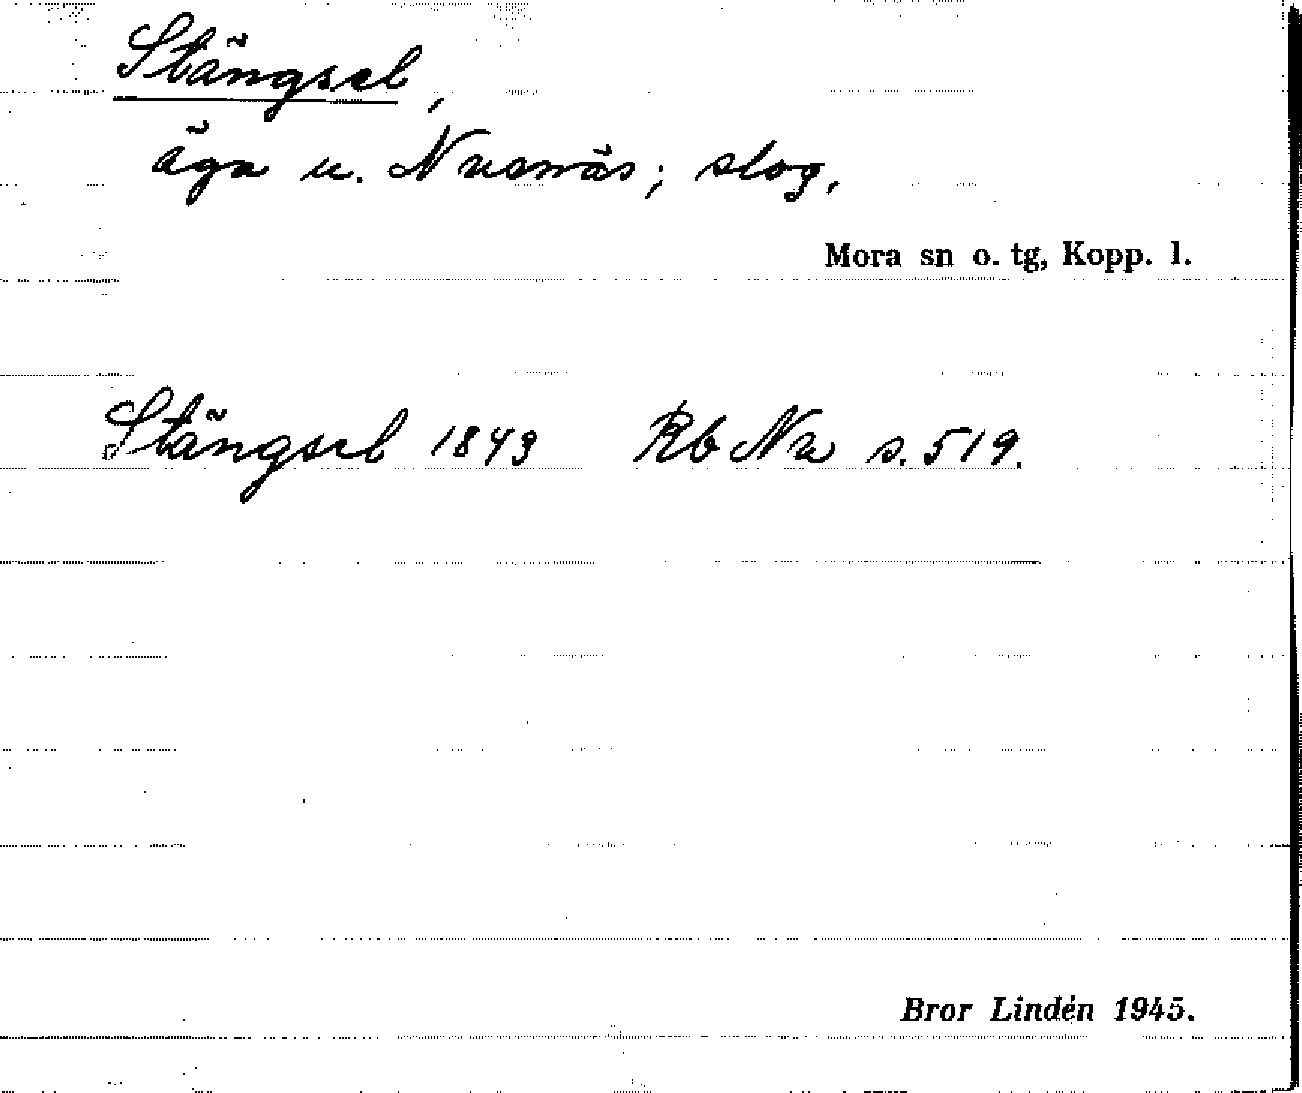 Stängsel,
äga u. Nusnäs; slog.
Mora sn o. tg, Kopp. l.
Stängsel 1843 Rb Nu s. 519.
Bror Lindén 1945.